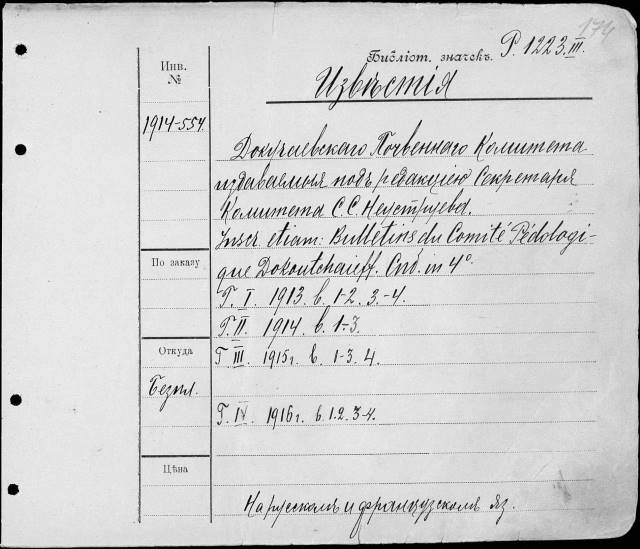 174
Библіот. значекъ. Р. 1223.III.
Инв.
№
Извѣстія
1914-554.
Докучаевскаго Почвеннаго Комитета
издаваемыя подъ редакціею Секретаря
Комитета С.С. Неуструева.
Inscr. etiam: Bulletins du Comité Pédologi-
que Dokoutchaieff. Спб. in 4°.
По заказу
Г. I. 1913. в. 1-2. 3-4.
Г. II. 1914. в. 1-3.
Откуда
Г. III. 1915г. в. 1-3. 4.
Безпл.
Г. IV. 1916г. в. 1. 2. 3-4.
Цѣна
На русскомъ и французскомъ яз.